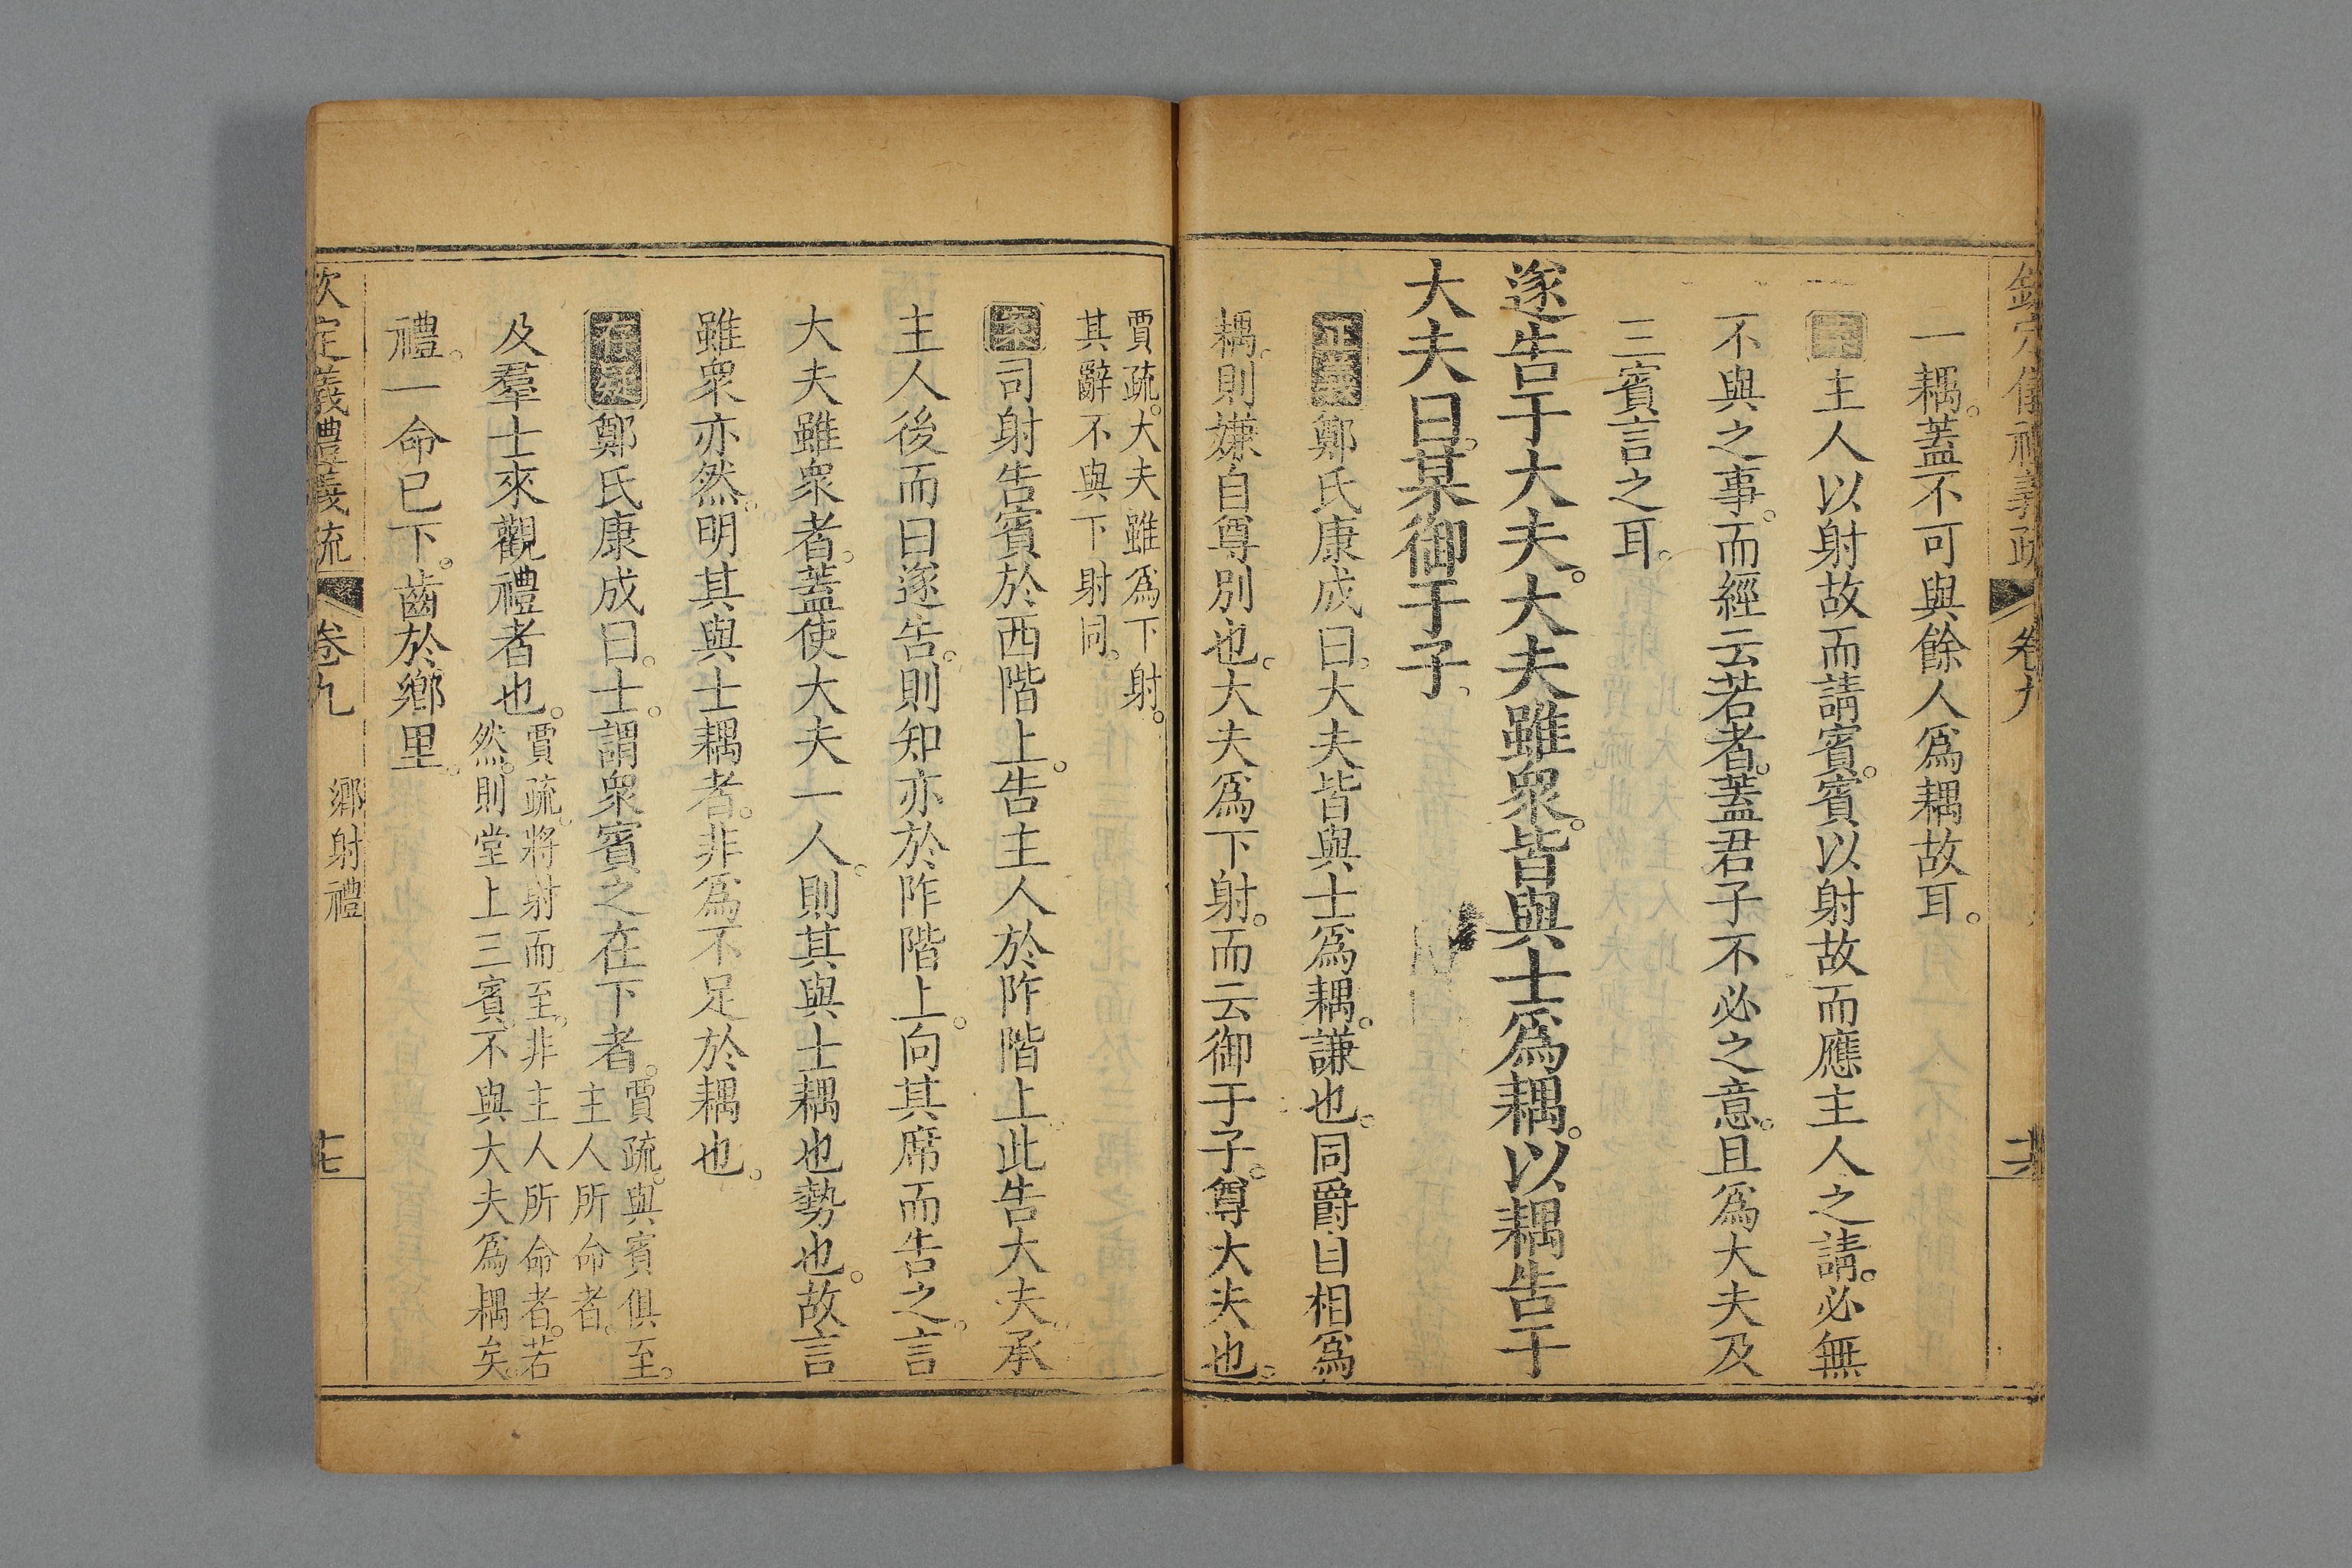 欽定儀禮義疏 卷九 十六
一耦。蓋不可與餘人爲耦故耳。
案主人以射故而請賓。賓以射故而應主人之請。必無
不與之事。而經云若者。蓋君子不必之意。且爲大夫及
三賓言之耳。
遂告于大夫。大夫雖衆。皆與士爲耦。以耦告于
大夫曰。某御于子。
正義鄭氏康成曰。大夫皆與士爲耦。謙也。同爵自相爲
耦。則嫌自尊別也。大夫爲下射。而云御于子。尊大夫也。
賈疏。大夫雖爲下射。
其辭不與下射同。
案司射告賓於西階上。告主人於阼階上。此告大夫。承
主人後而曰遂告。則知亦於阼階上。向其席而告之。言
大夫雖衆者。蓋使大夫一人。則其與士耦也勢也。故言
雖衆亦然。明其與士耦者。非爲不足於耦也。
存疑鄭氏康成曰。士。謂衆賓之在下者。
賈疏。與賓俱至。
主人所命者。
及羣士來觀禮者也。
賈疏。將射而至。非主人所命者。若
然。則堂上三賓。不與大夫爲耦矣。
禮。一命已下。齒於鄉里。
欽定儀禮義疏 卷九 鄉射禮 十七